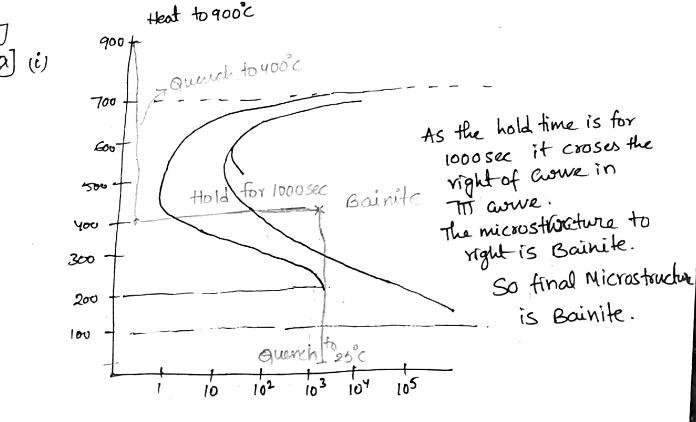 Heat to 900°C
a] (i)
900
Quench to 400°C
700
600
500
400
300
200
100
Hold for 1000 sec
Bainite
Quench to 25°C
1 10 10² 10³ 10⁴ 10⁵
As the hold time is for
1000 sec it croses the
right of curve in
TTT curve.
The microstructure to
right is Bainite.
So final Microstructure
is Bainite.